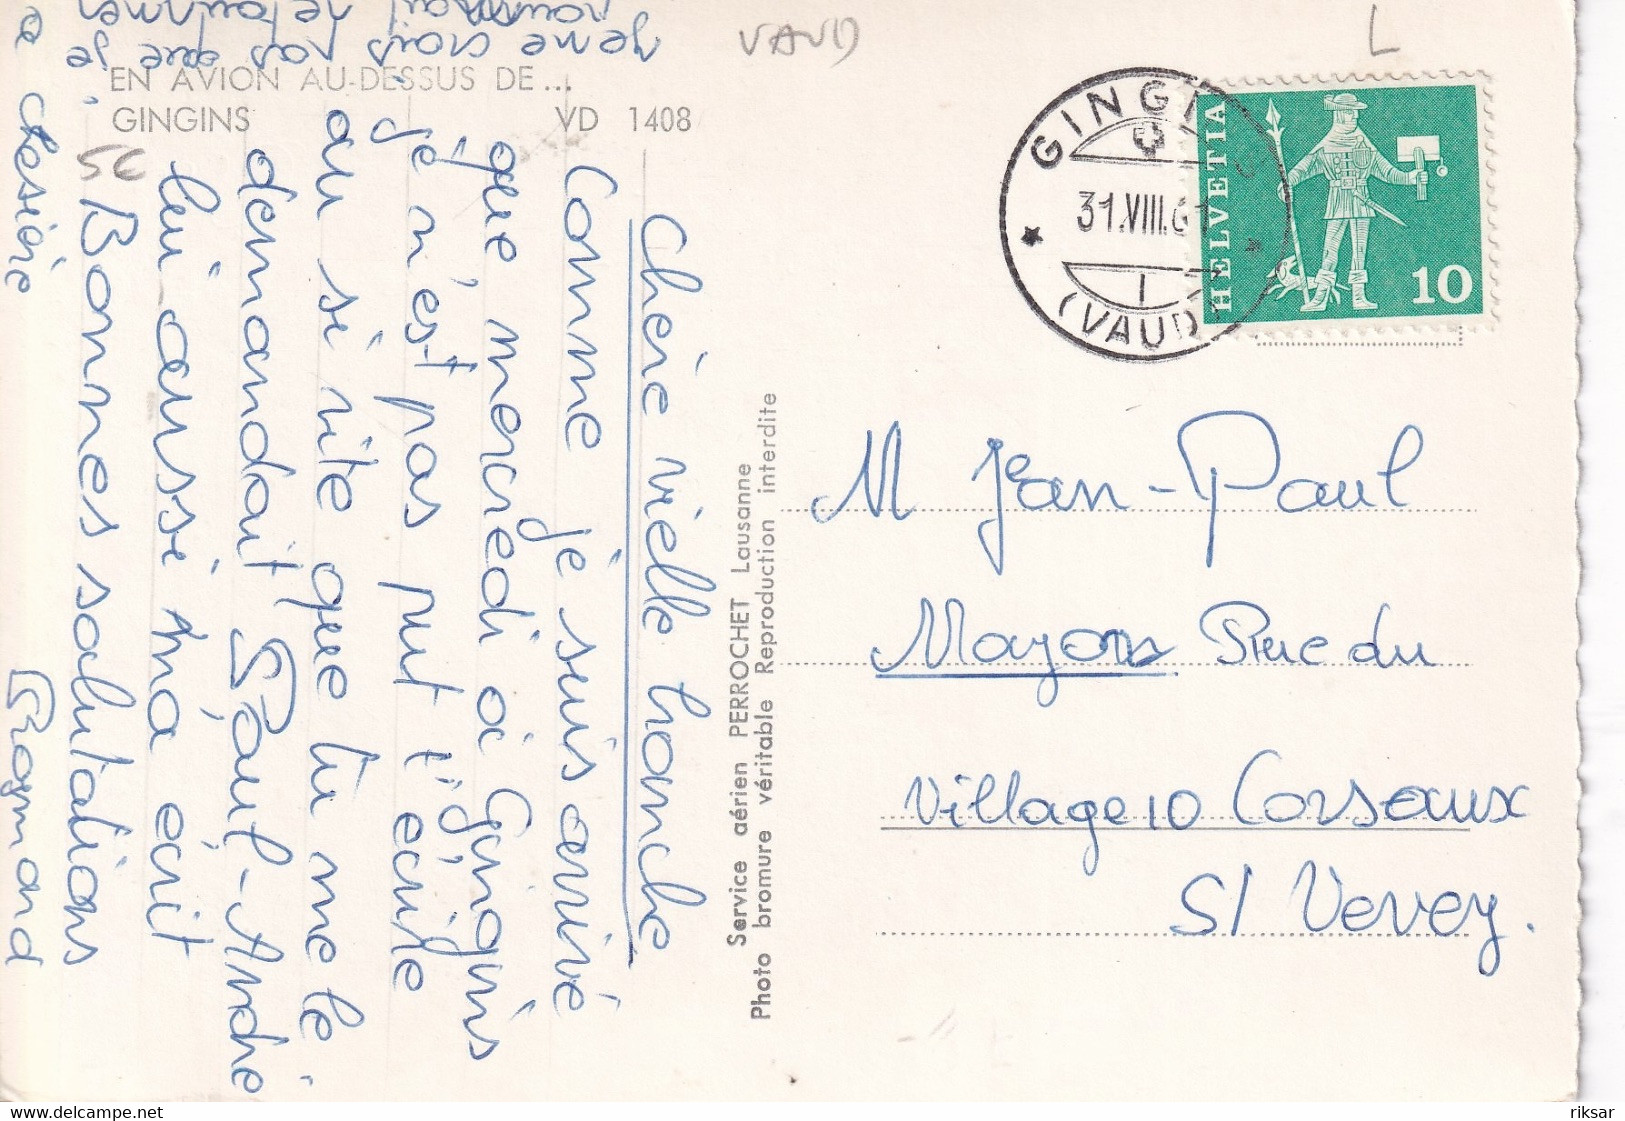 EN AVION AU-DESSUS DE...
GINGINS VD 1408
VAUD
L
GINGI
31.VIII.61
(VAUD)
HELVETIA
10
Chère vielle branche
Comme je suis arrivé
que mercredi à Gingins
je n'est pas put t'écrile
au si vite que tu me le
demandait. Paul-André
lui aussi m'a écrit
Bonnes salutations
Raymond
je ne crois pas que je
pourrait retourner
a chesière
Service aérien PERROCHET Lausanne
Photo bromure véritable Reproduction interdite
M Jean-Paul
Mayor Rue du
Village 10 Corseaux
S/ Vevey.
delcampe.net
riksar